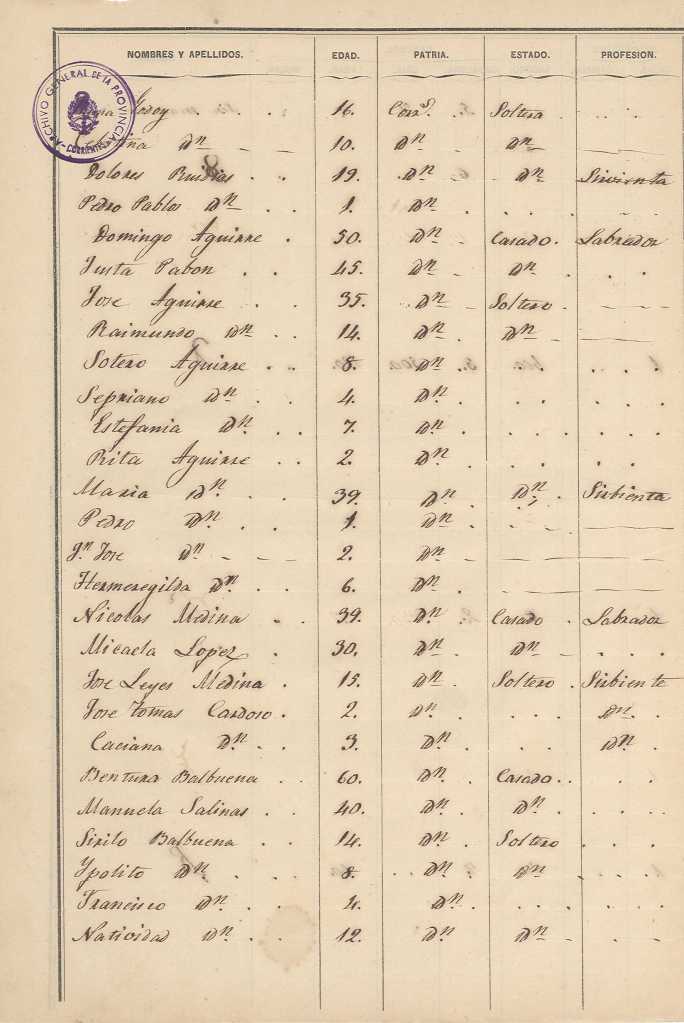 NOMBRES Y APELLIDOS. EDAD. PATRIA. ESTADO. PROFESION.
ARCHIVO GENERAL DE LA PROVINCIA
CORRIENTES
Godoy 16. Corr.s Soltera
Dn 10. Dn Dn
Dolores Ruidias 19. Dn Dn Sirvienta
Pedro Pablos Dn 1. Dn
Domingo Aguirre 50. Dn Casado. Labrador
Justa Pabon 45. Dn Dn
Jose Aguirre 35. Dn Soltero
Raimundo Dn 14. Dn Dn
Sotero Aguirre 8. Dn
Sepriano Dn 4. Dn
Estefania Dn 7. Dn
Rita Aguirre 2. Dn
Maria Dn 39. Dn Dn Sirbienta
Pedro Dn 1. Dn
Jn Jose Dn 2. Dn
Hermeregilda Dn 6. Dn
Nicolas Medina 39. Dn Casado Labrador
Micaela Lopez 30. Dn Dn
Jose Leyes Medina 15. Dn Soltero Sirbiente
Jose Tomas Cardoso 2. Dn Dn
Caciana Dn 3. Dn Dn
Bentura Balbuena 60. Dn Casado
Manuela Salinas 40. Dn Dn
Sirilo Balbuena 14. Dn Soltero
Ypolito Dn 8. Dn Dn
Francisco Dn 4. Dn
Natividad Dn 12. Dn Dn